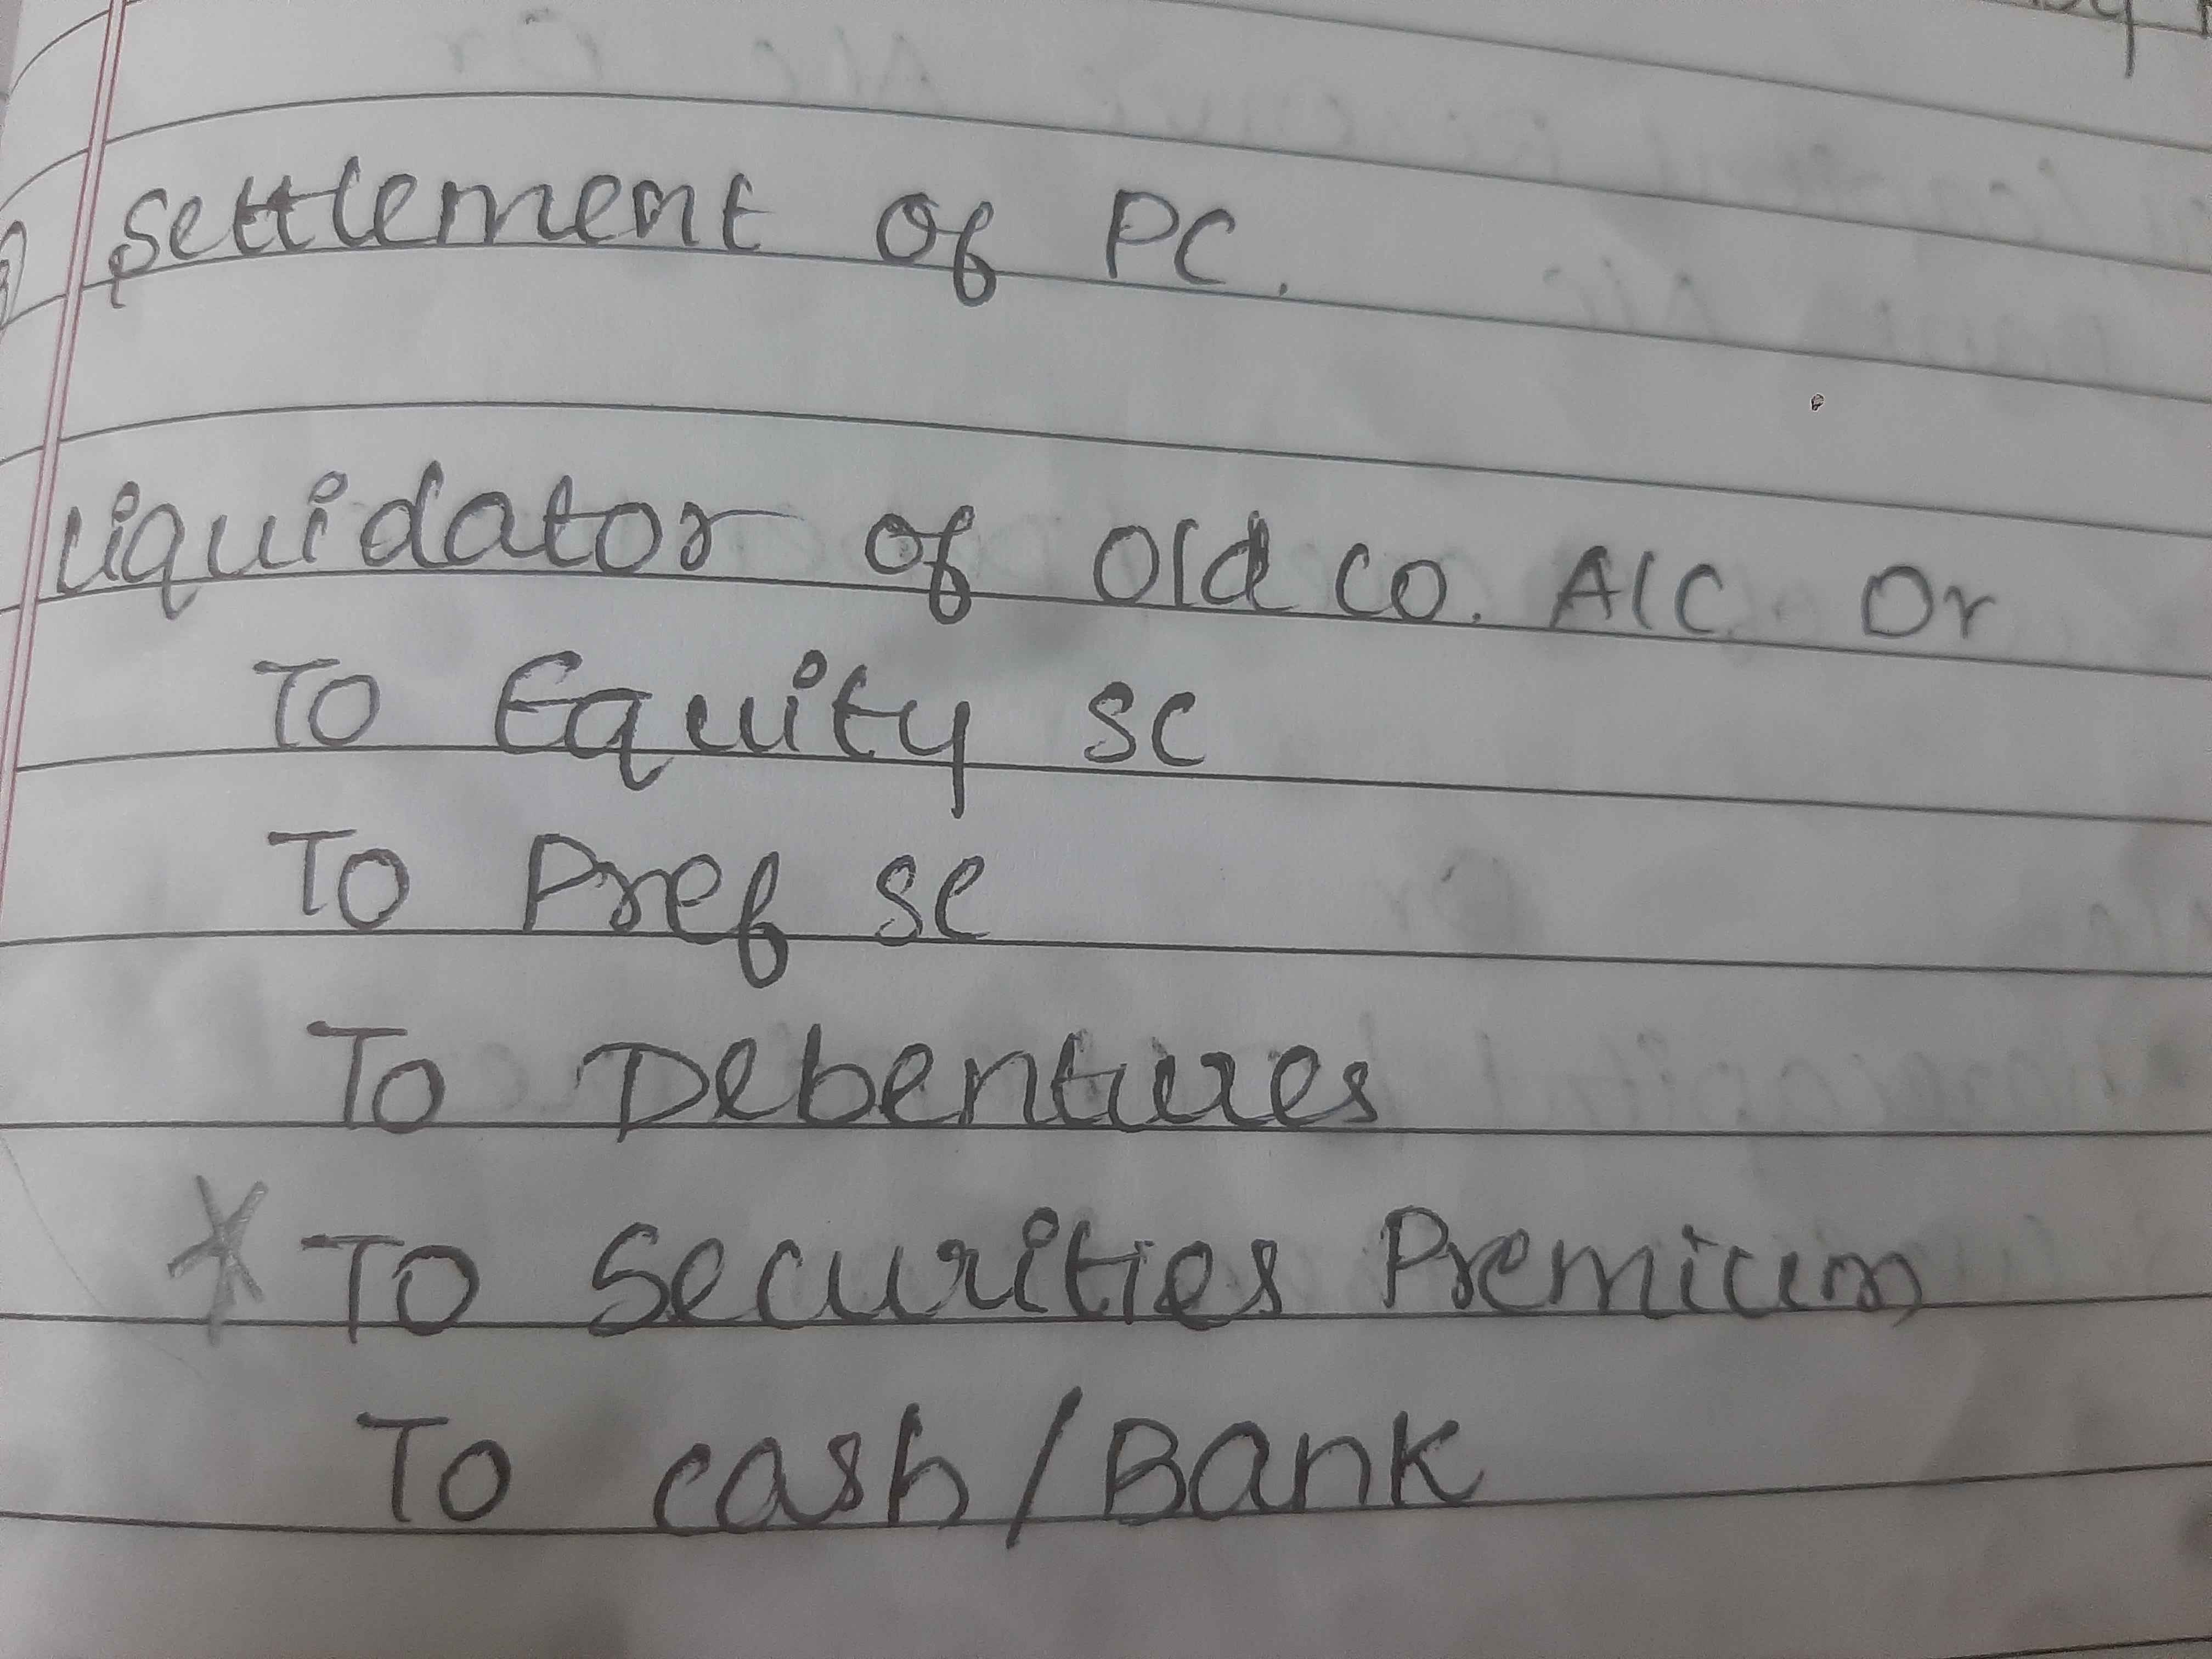 Settlement of PC.
Liquidator of Old co. A/C Dr
To Equity SC
To Pref SC
To Debentures
* To Securities Premium
To cash/Bank